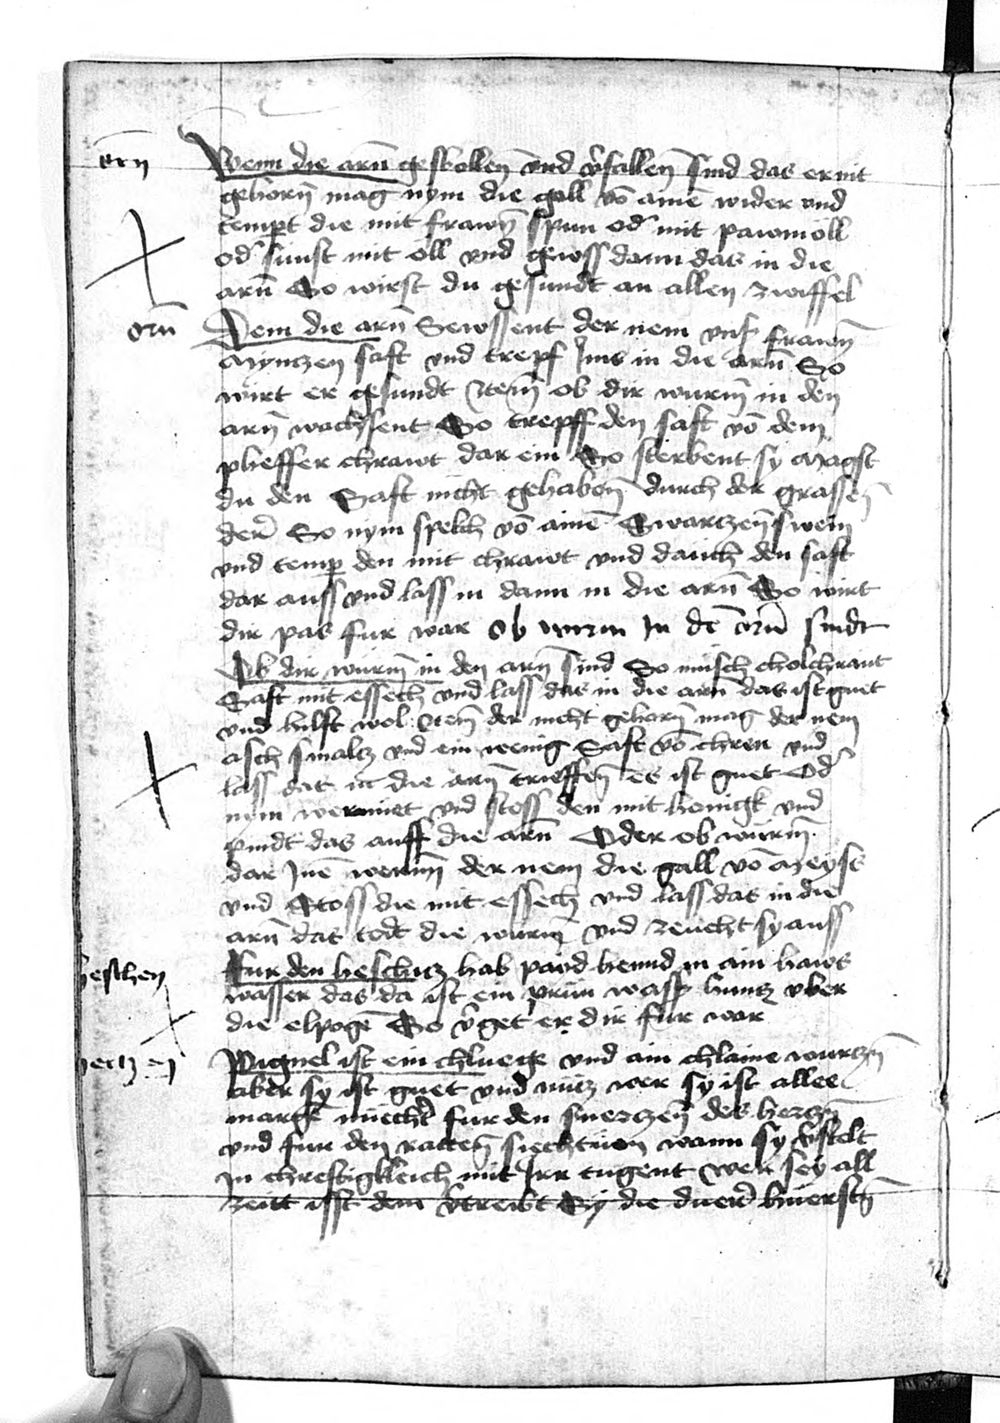 orn
Wem die arn̄ geswollen̄ vnd v̓fallen̄ sind das er nit
gehorn̄ mag nym die gall vō ainē wider vnd
tempt die mit frawn̄ spun od̓ mit pawmöll
od̓ sunst mit öll vnd gewss dann das in die
arn̄ So wirst du gesundt an allen zwiffel
orn̄
Dem die arn̄ Sewssent der nem vnß frawn̄
Myntzen saft vnd trepf Ims in die arn̄ So
wirt er gesundt Item̄ ob dir wurm̄ in den
arn̄ wachssent So trepff den saft vō dem
pheffer chrawt dar ein So sterbent sy Magst
du den Saft nicht gehaben̄ durch der grassen̄
der̄ So nym spelch vō ainē Swartzen̄ swein
vnd temp den mit chrawt vnd dauch den saft
dar auss vnd lass in dann in die arn̄ So wirt
dir pas fur war Ob wurm In dē orn̄ sindt
Ob dir wurm̄ in den arn̄ sind So misch cholchraut
Saft mit essech vnd lass das in die arn̄ das ist guet
vnd hilft wol Item̄ der nicht gehorn̄ mag der nem
asch smaltz vnd ein wenig Saft vō chren vnd
lass dat in die arn̄ trieffen̄ es ist guet Od̓
nym wermut vnd stoss den mit honigk vnd
pindt das auff die arn̄ Oder ob wurm̄
dar Inē werinn̄ der nem die gall vō
vnd Stoss die mit essech vnd lass das in die
arn̄ dat todt die wurm̄ vnd zeucht sy auss
heschen
Fur den heschitz hab paid hennd in ain haws
wasser das da ist ein prun wass̓ huntz vber
die elpogē So v̓get er dir fur war
hertzen
Pugnel ist ein chluege vnd ain chlaine wurtzn̄
aber sy ist guet vnd nutz wer sy ist allee
marge niecht̓ fur den smerczen̄ des herczn̄
vnd fur den siechtuom wann sy v̓stelt
In chreftigkleich mit Irr tugent Wer sey all
Zeitt isst dem v̓treibt Sy die